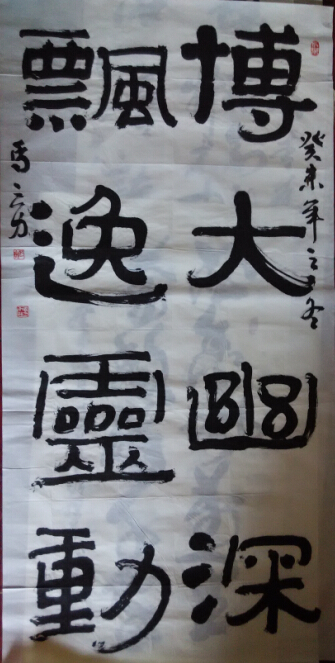 癸未年之冬
博大幽深
飄逸靈動